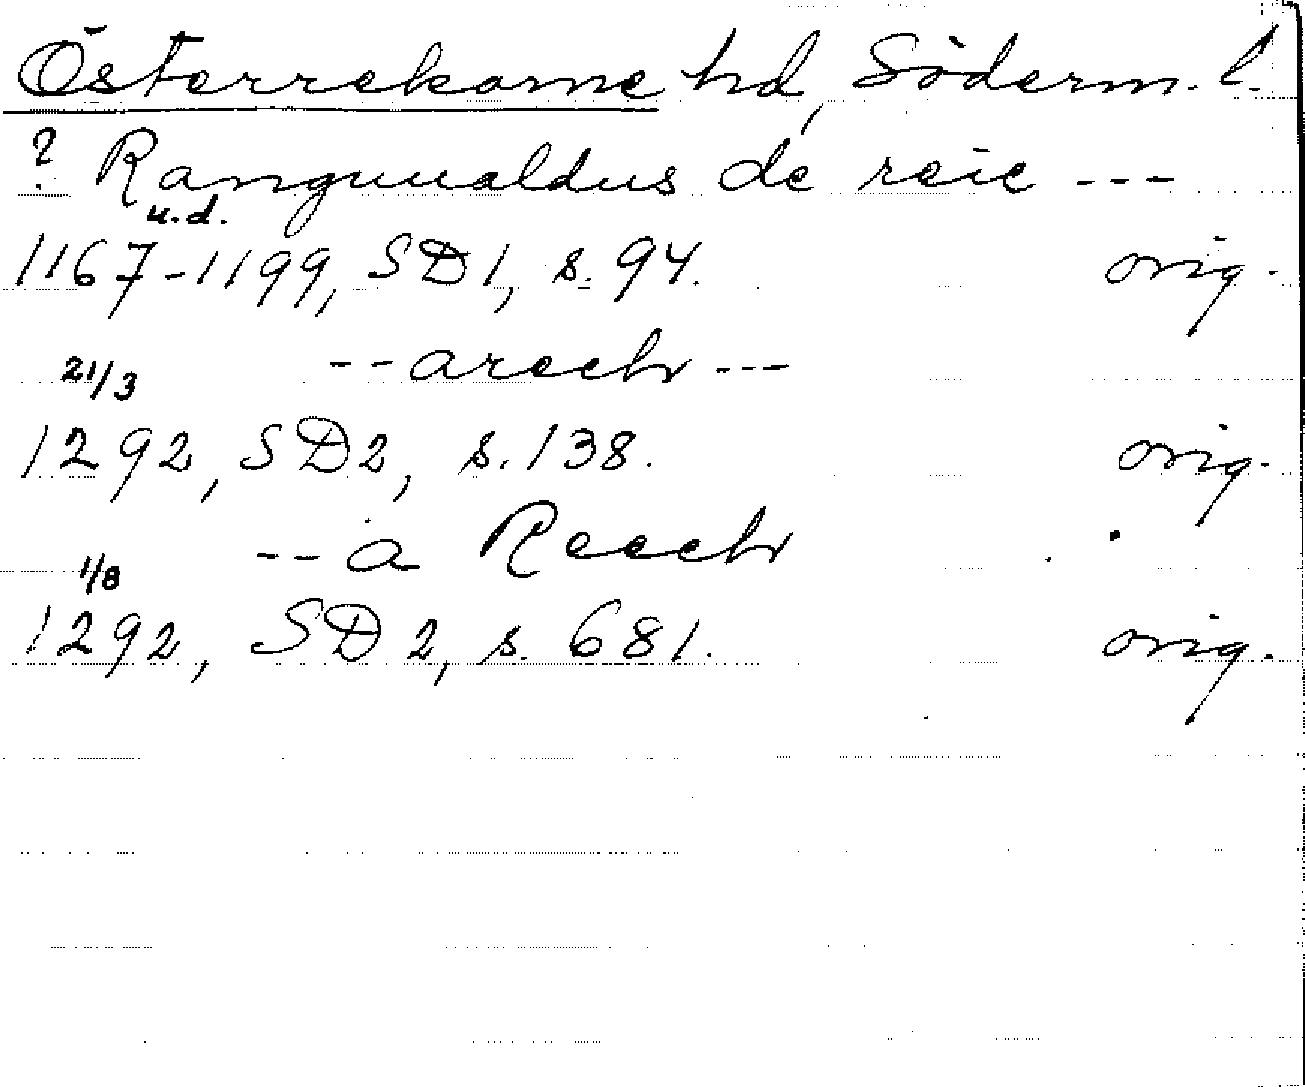 Österrekarne hd, Söderm. l.
? Ranguualdus de reie ---
u.d.
1167-1199, SD1, s. 94. orig.
21/3 -- a rech ---
1292, SD2, s. 138. orig.
1/8 -- a Reech
1292, SD2, s. 681. orig.